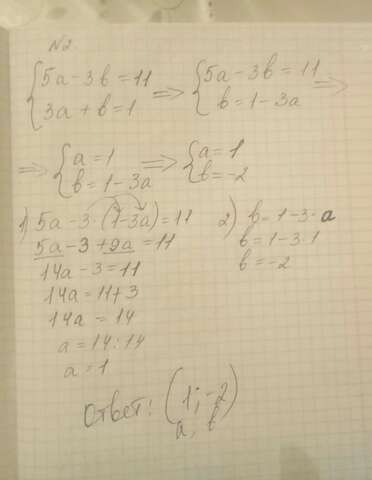 №2.
{5a-3b=11 => {5a-3b=11 =>
{3a+b=1 {b=1-3a
=> {a=1 => {a=1
{b=1-3a {b=-2
1) 5a-3·(1-3a)=11
5a-3+9a=11
14a-3=11
14a=11+3
14a=14
a=14:14
a=1
2) b=1-3·a
b=1-3·1
b=-2
Ответ: (1; -2)
a, b